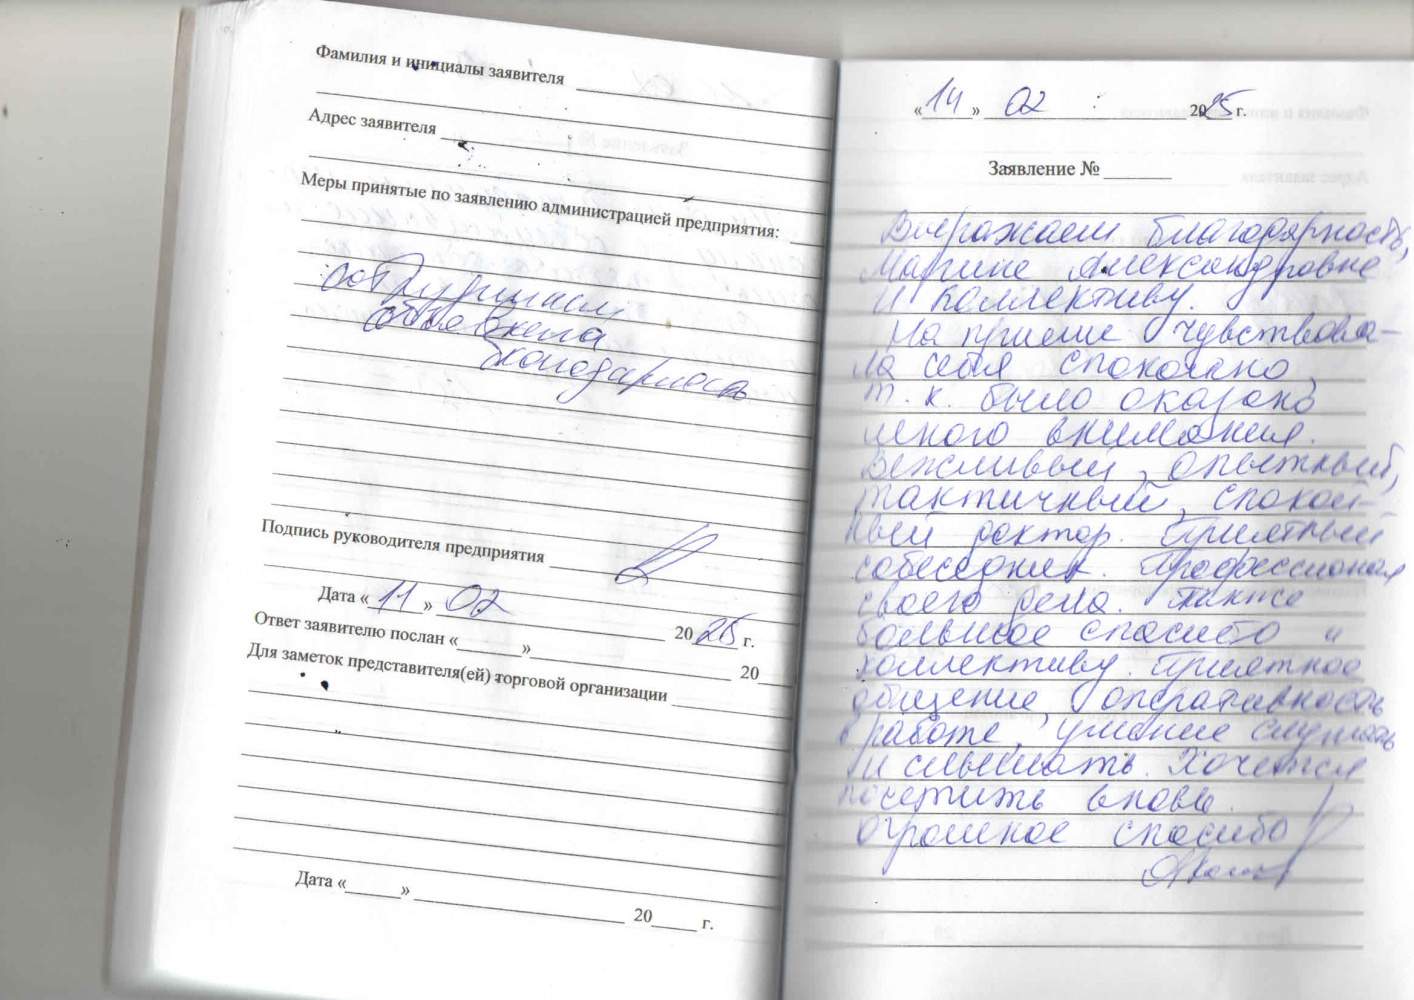 Фамилия и инициалы заявителя
Адрес заявителя
Меры принятые по заявлению администрацией предприятия:
сотрудникам
объявлена
благодарность
Подпись руководителя предприятия
Дата «11» 02 2025 г.
Ответ заявителю послан «      » 20
Для заметок представителя(ей) торговой организации
Дата «      » 20      г.
«14» 02 2025 г.
Заявление №
Выражаем благодарность,
Марине Александровне
и коллективу.
На приеме чувствова-
ла себя спокойно,
т. к. было оказано
много внимания.
Вежливый, опытный,
тактичный, спокой-
ный доктор. Приятный
собеседник. Профессионал
своего дела. Также
большое спасибо и
коллективу. Приятное
общение, оперативность
в работе, умение слушать
и слышать. Хочется
посетить вновь.
Огромное спасибо